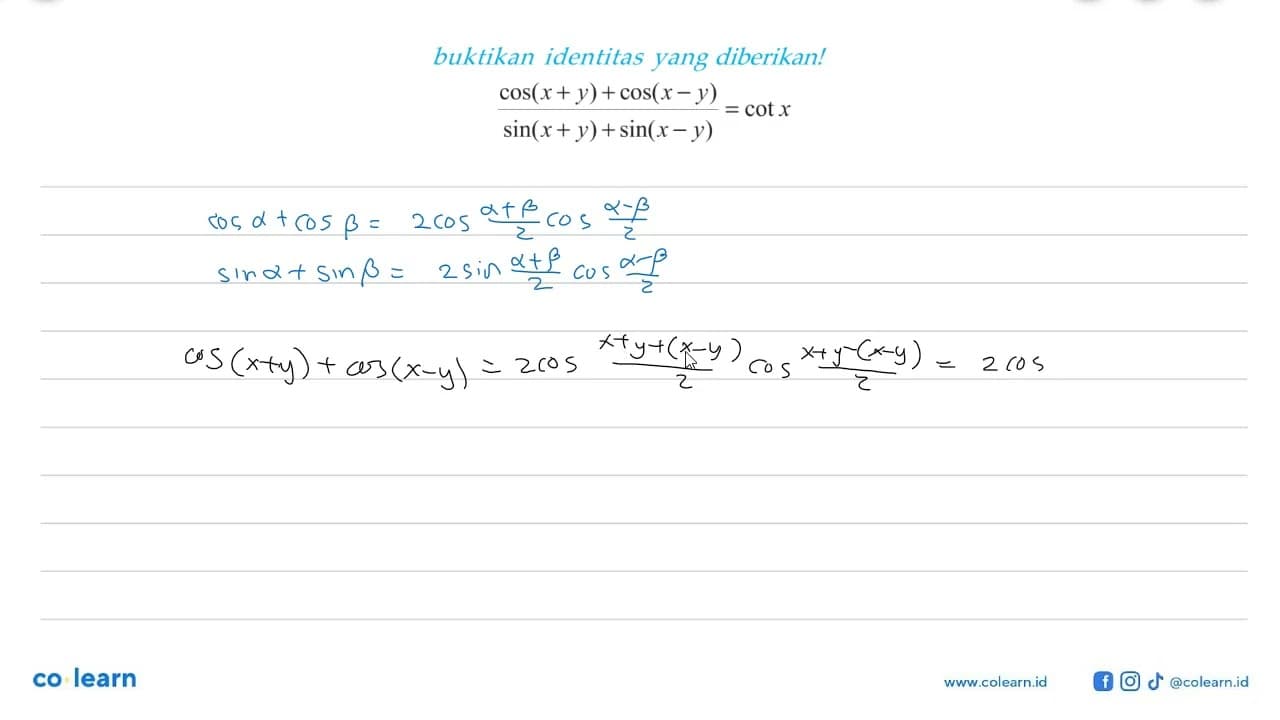 buktikan identitas yang diberikan!
cos(x + y) + cos(x − y)
sin(x + y) + sin(x − y)
= cot x
cos α + cos β = 2 cos (α+β)/2 cos (α−β)/2
sin α + sin β = 2 sin (α+β)/2 cos (α−β)/2
cos(x+y) + cos(x−y) = 2 cos (x+y+(x−y))/2 cos (x+y−(x−y))/2 = 2 cos
co learn
www.colearn.id
@colearn.id